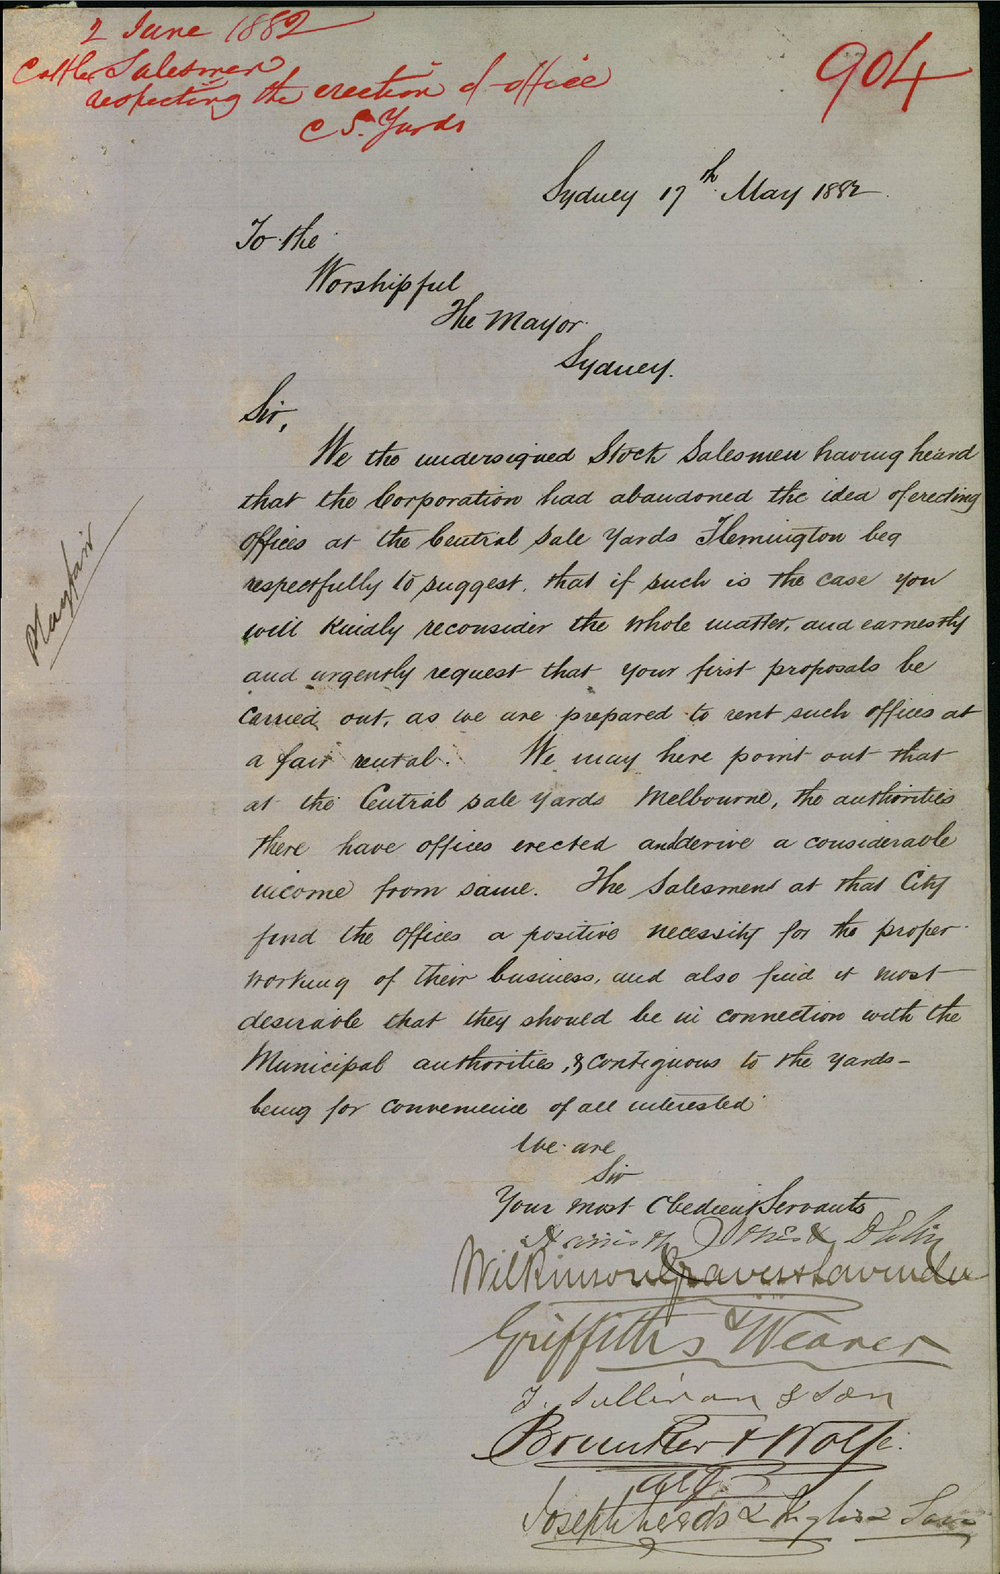 2 June 1882
Cattle Salesmen
respecting the erection of office
C S. Yards
904
Sydney 17th May 1882
To the
Worshipful
The Mayor
Sydney.
Sir,
We the undersigned Stock Salesmen having heard
that the Corporation had abandoned the idea of erecting
offices at the Central Sale Yards Flemington beg
respectfully to suggest, that if such is the case you
will kindly reconsider the whole matter, and earnestly
and urgently request that your first proposals be
carried out, as we are prepared to rent such offices at
a fair rental. We may here point out that
at the Central sale yards Melbourne, the authorities
there have offices erected and derive a considerable
income from same. The Salesmen at that City
find the offices a positive necessity for the proper
working of their business, and also find it most
desirable that they should be in connection with the
Municipal authorities, & contiguous to the yards -
being for convenience of all interested
We are
Sir
Your most Obedient Servants
Wilkinson Graves & Lavender
Griffiths & Weaver
T. Sullivan & Son
Brunker & Wolfe
Joseph Leeds &